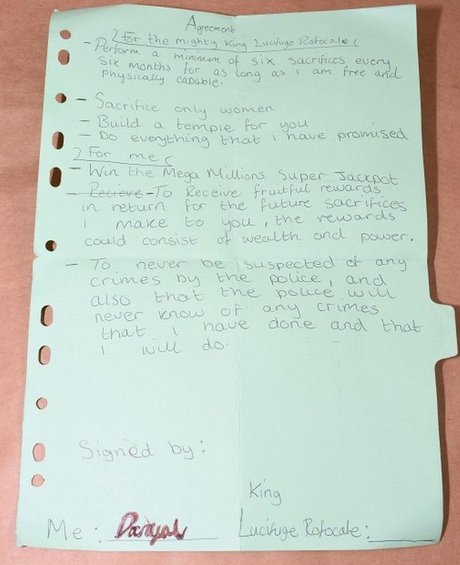 Agreement
2 For the mighty King Lucifuge Rofocale (
- Perform a minimum of six sacrifices every
six months for as long as I am free and
physically capable.
- Sacrifice only women
- Build a temple for you
- Do everything that i have promised
2 For me (
- Win the Mega Millions Super Jackpot
- Recieve To Receive fruitful rewards
in return for the future sacrifices
I make to you, the rewards
could consist of wealth and power.
- To never be suspected of any
crimes by the police, and
also that the police will
never know of any crimes
that I have done and that
I will do.
Signed by:
King
Me: Danyal Lucifuge Rofocale: